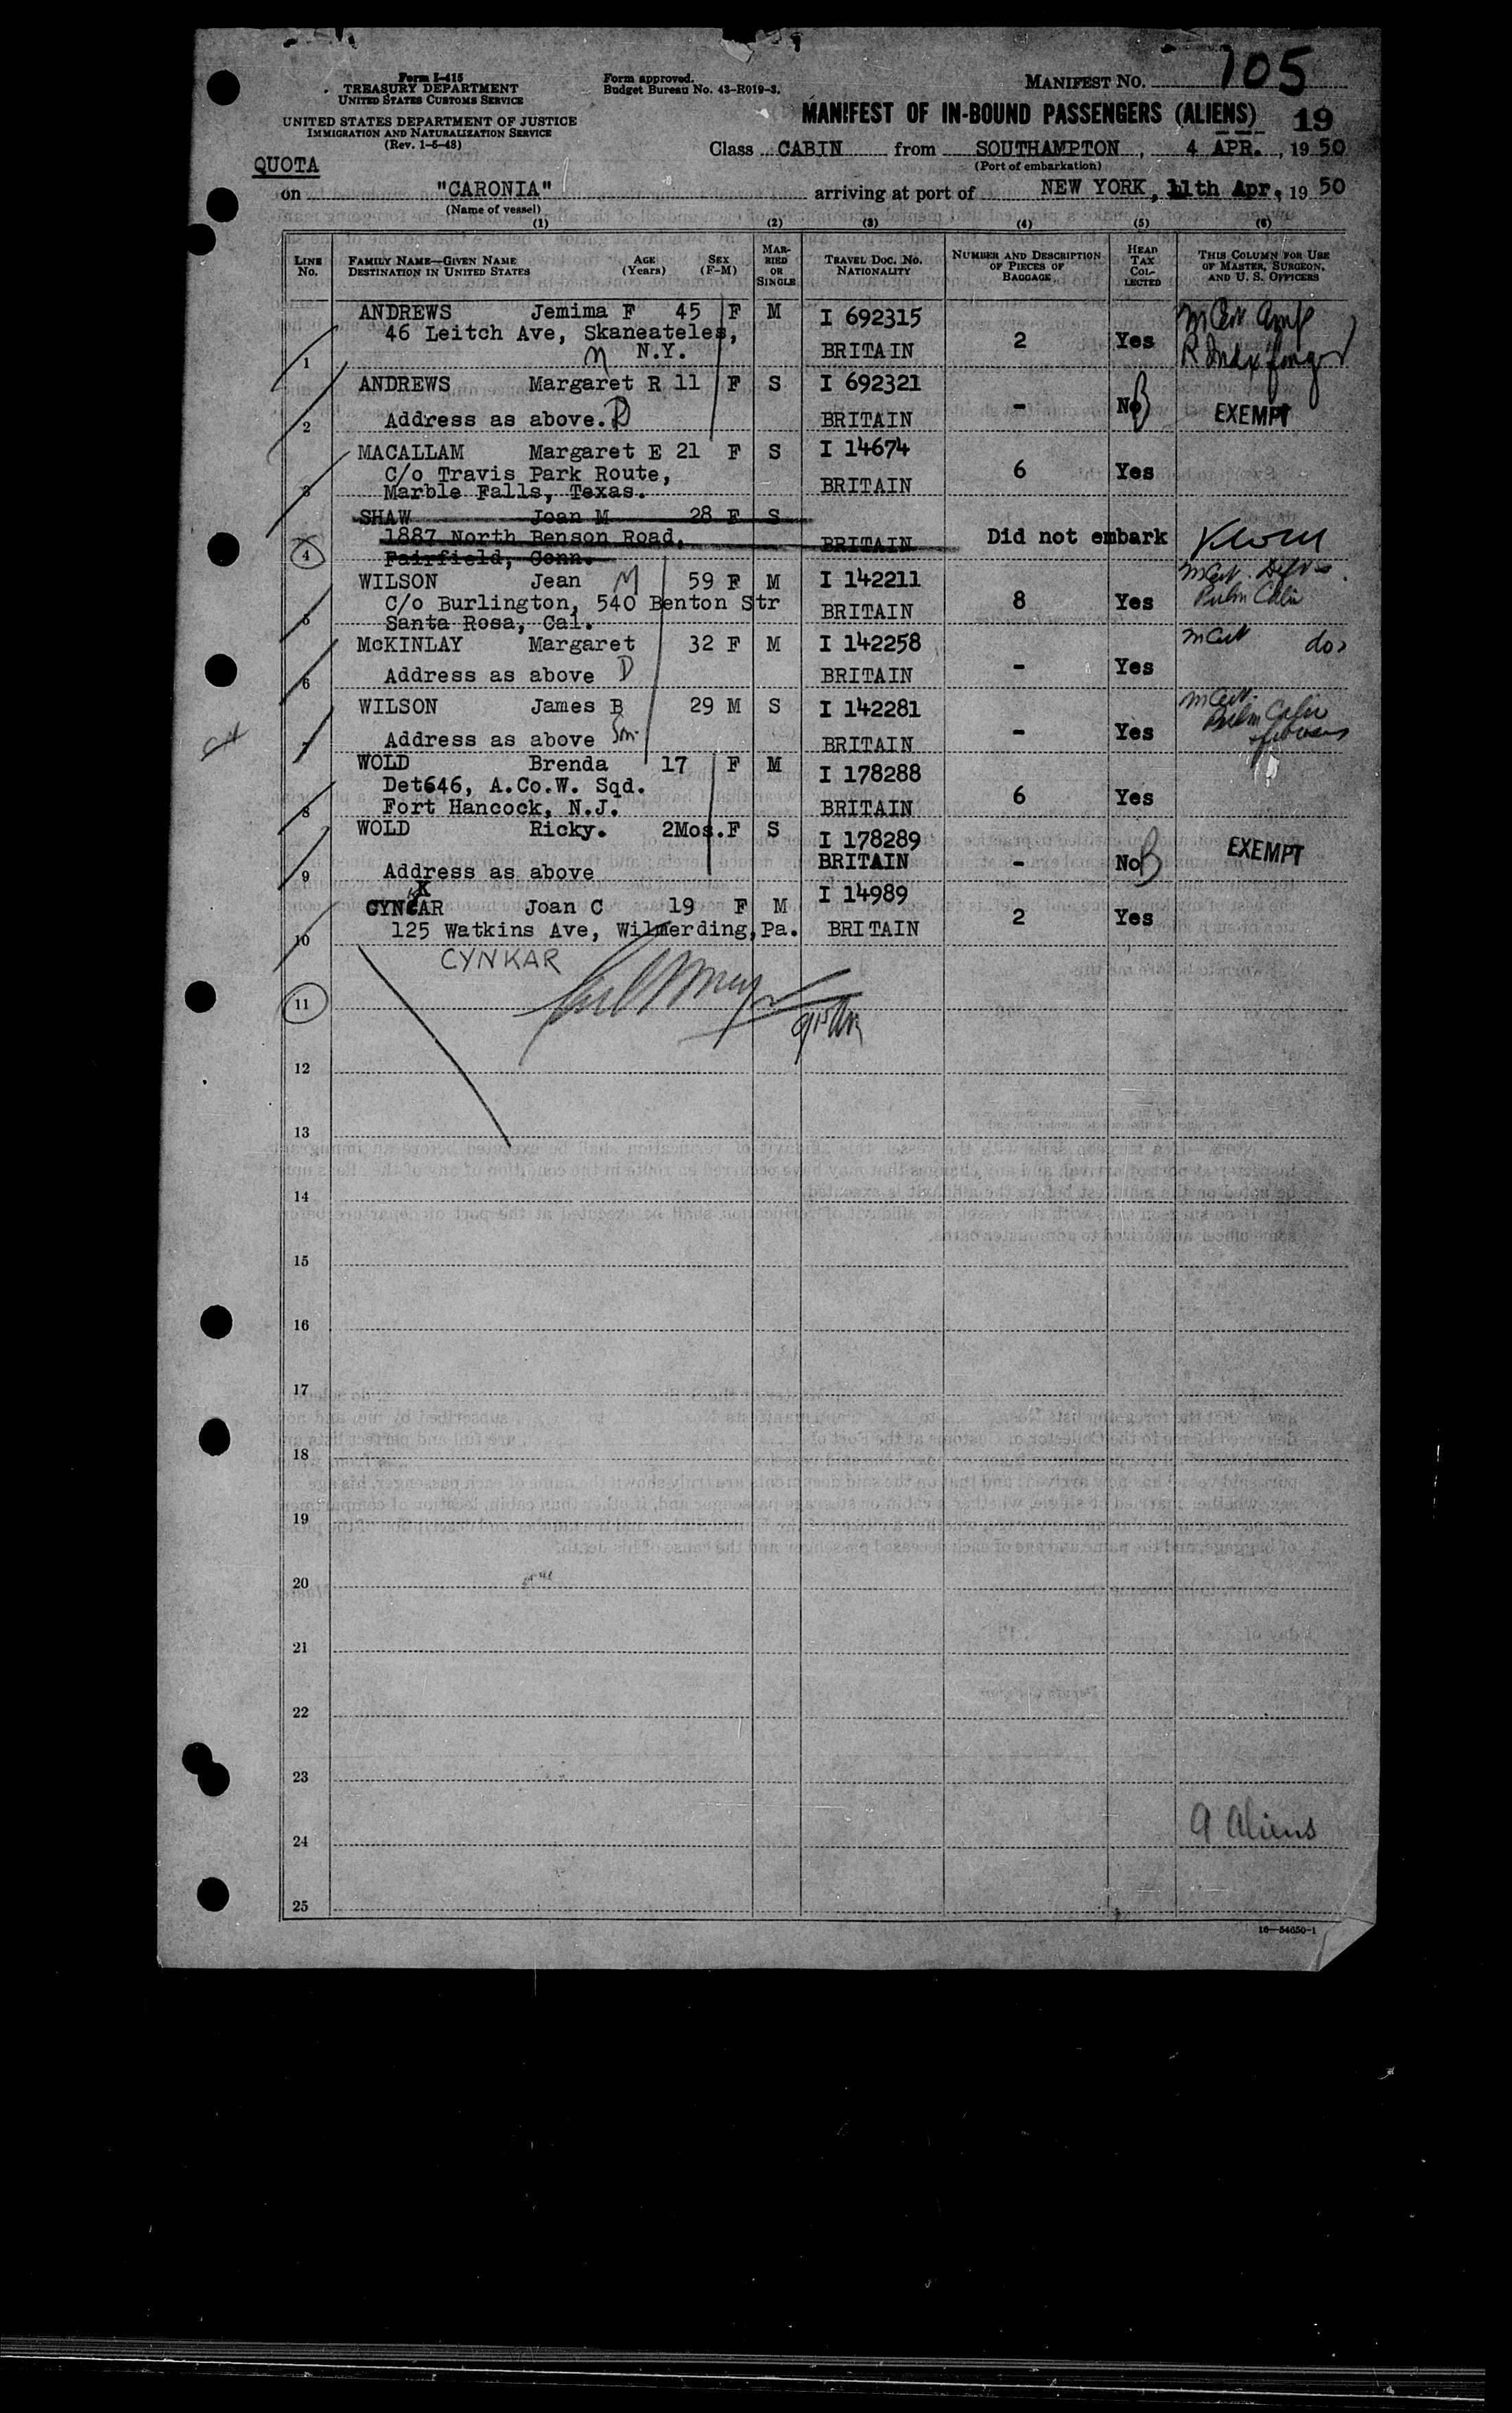 Form I-415
TREASURY DEPARTMENT
UNITED STATES CUSTOMS SERVICE
UNITED STATES DEPARTMENT OF JUSTICE
IMMIGRATION AND NATURALIZATION SERVICE
(Rev. 1-5-48)
Form approved.
Budget Bureau No. 43-R019-3.
MANIFEST NO. 105
MANIFEST OF IN-BOUND PASSENGERS (ALIENS) 19
Class CABIN from SOUTHAMPTON, 4 APR., 1950
(Port of embarkation)
QUOTA
on "CARONIA" arriving at port of NEW YORK, 11th Apr, 1950
(Name of vessel)
(1) (2) (3) (4) (5) (6)
LINE No. FAMILY NAME—GIVEN NAME DESTINATION IN UNITED STATES AGE (Years) SEX (F-M) MARRIED OR SINGLE TRAVEL DOC. NO. NATIONALITY NUMBER AND DESCRIPTION OF PIECES OF BAGGAGE HEAD TAX COLLECTED THIS COLUMN FOR USE OF MASTER, SURGEON, AND U. S. OFFICERS
ANDREWS Jemima F 45 F M I 692315
46 Leitch Ave, Skaneateles,
1 M N.Y. BRITAIN 2 Yes
ANDREWS Margaret R 11 F S I 692321
2 Address as above. D BRITAIN - No EXEMPT
MACALLAM Margaret E 21 F S I 14674
C/o Travis Park Route,
3 Marble Falls, Texas. BRITAIN 6 Yes
SHAW Joan M 28 F S
1887 North Benson Road,
4 Fairfield, Conn. BRITAIN Did not embark
WILSON Jean M 59 F M I 142211
C/o Burlington, 540 Benton Str
5 Santa Rosa, Cal. BRITAIN 8 Yes
McKINLAY Margaret 32 F M I 142258
6 Address as above D BRITAIN - Yes
WILSON James B 29 M S I 142281
7 Address as above Son BRITAIN - Yes
WOLD Brenda 17 F M I 178288
Det646, A.Co.W. Sqd.
8 Fort Hancock, N.J. BRITAIN 6 Yes
WOLD Ricky. 2Mos. F S I 178289
9 Address as above BRITAIN - No EXEMPT
X
CYNCAR Joan C 19 F M I 14989
10 125 Watkins Ave, Wilmerding, Pa. BRITAIN 2 Yes
CYNKAR
11
12
13
14
15
16
17
18
19
20
21
22
23
24 9 Aliens
25
16—54650-1